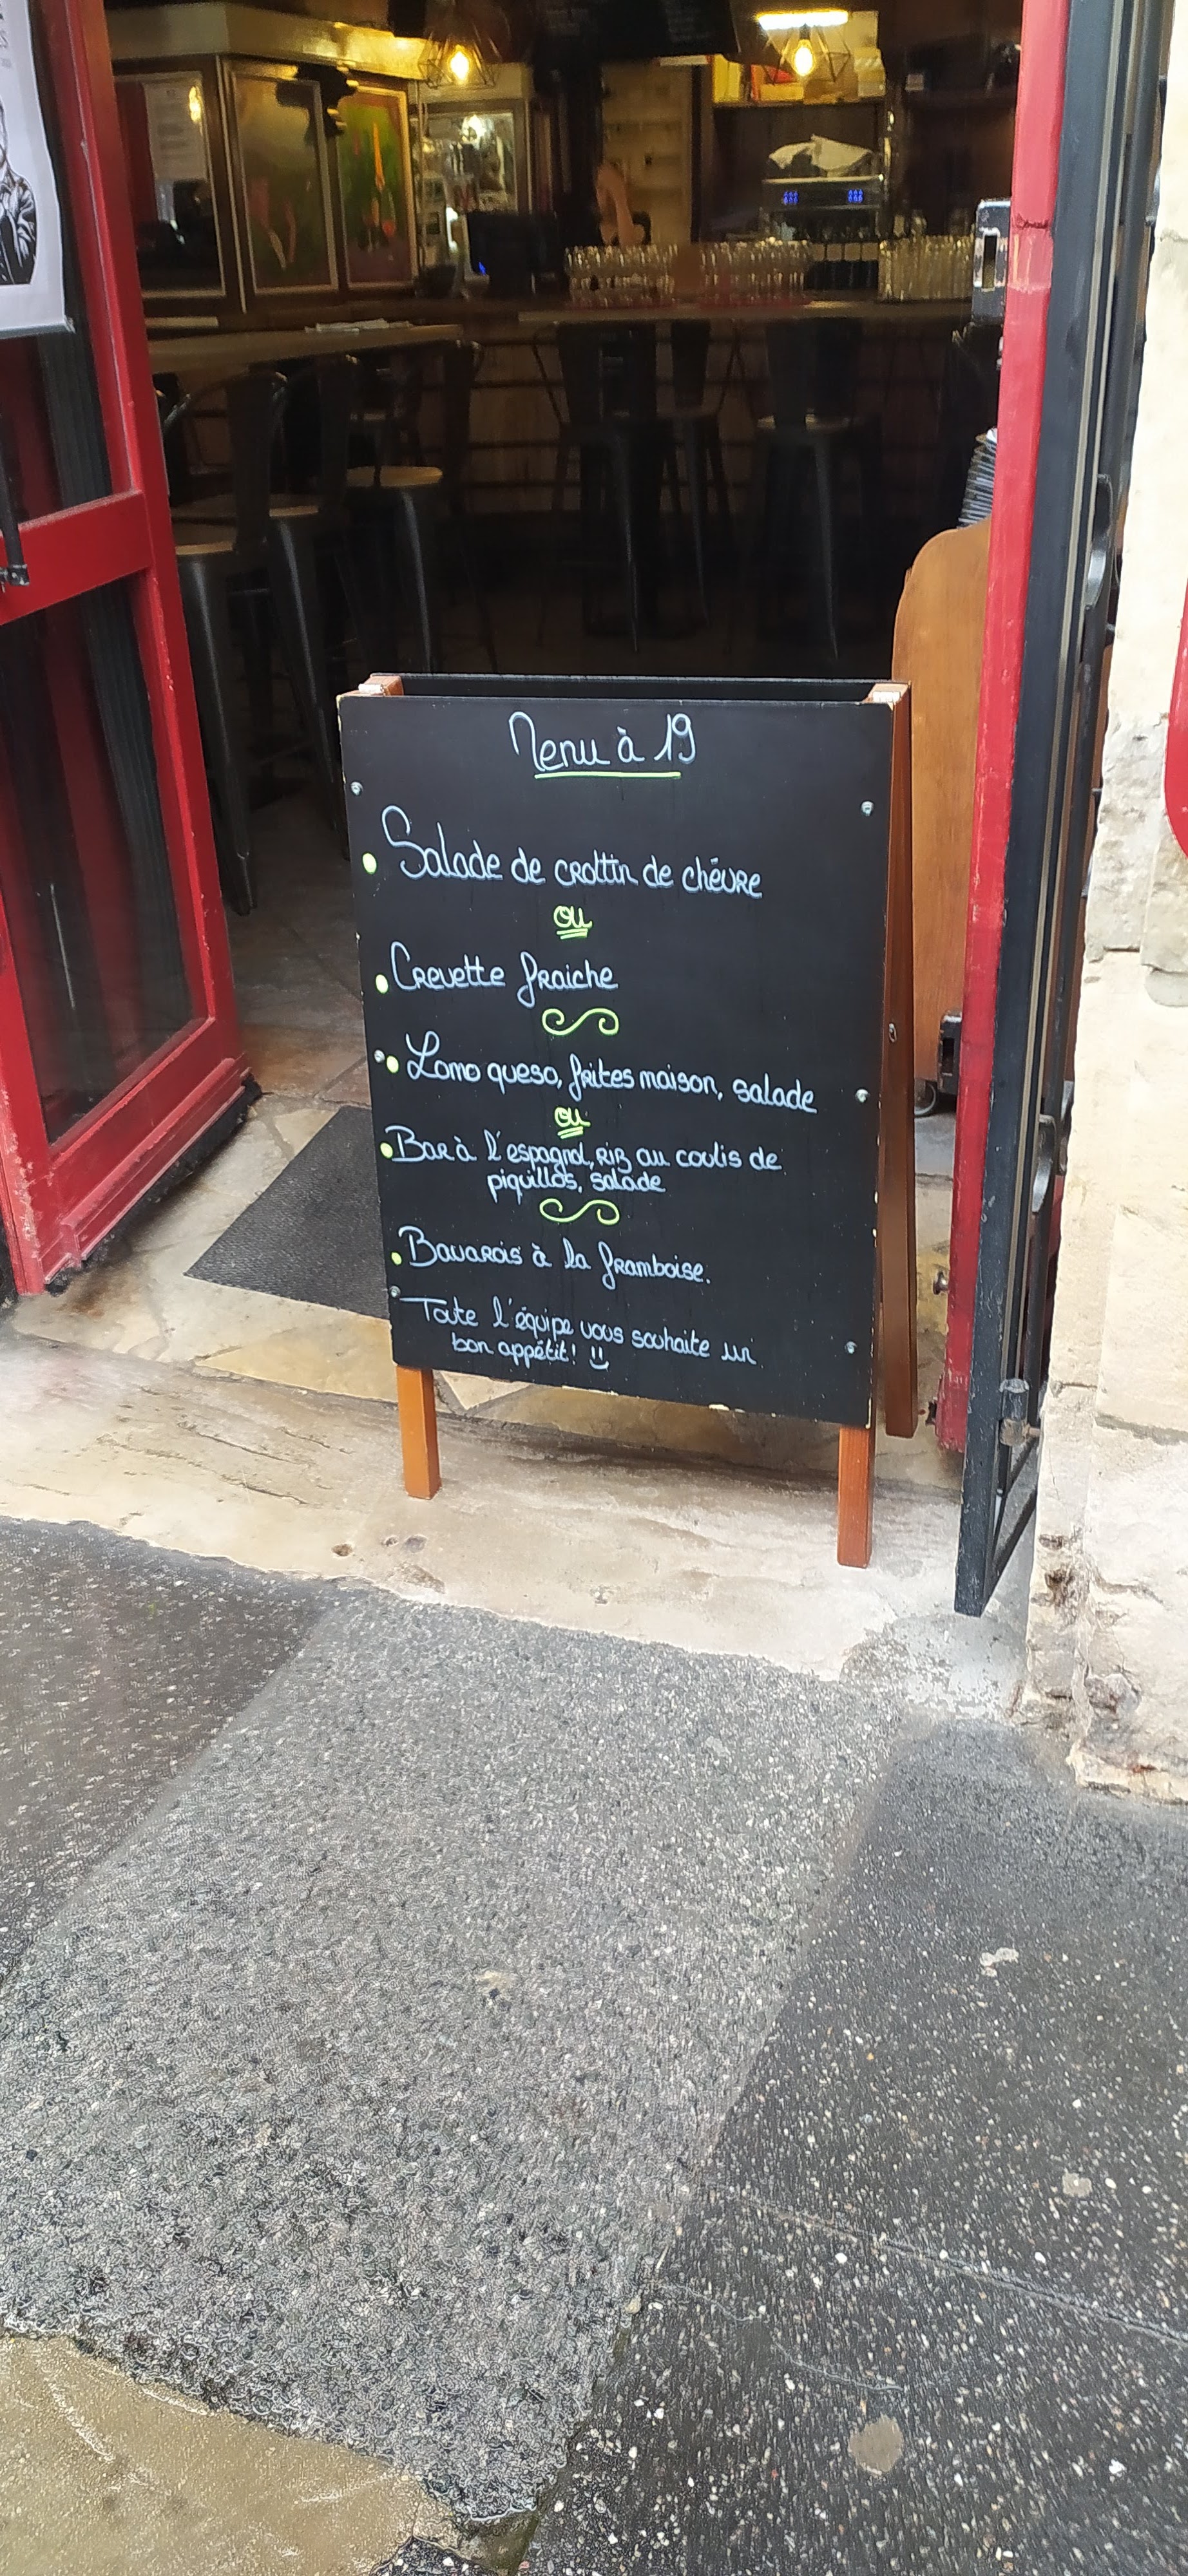 Menu à 19
Salade de crottin de chévre
ou
Crevette fraiche
Lomo queso, frites maison, salade
ou
Bar à l'espagnol, riz au coulis de
piquillos, salade
Bavarois à la framboise.
Toute l'équipe vous souhaite un
bon appétit! :)